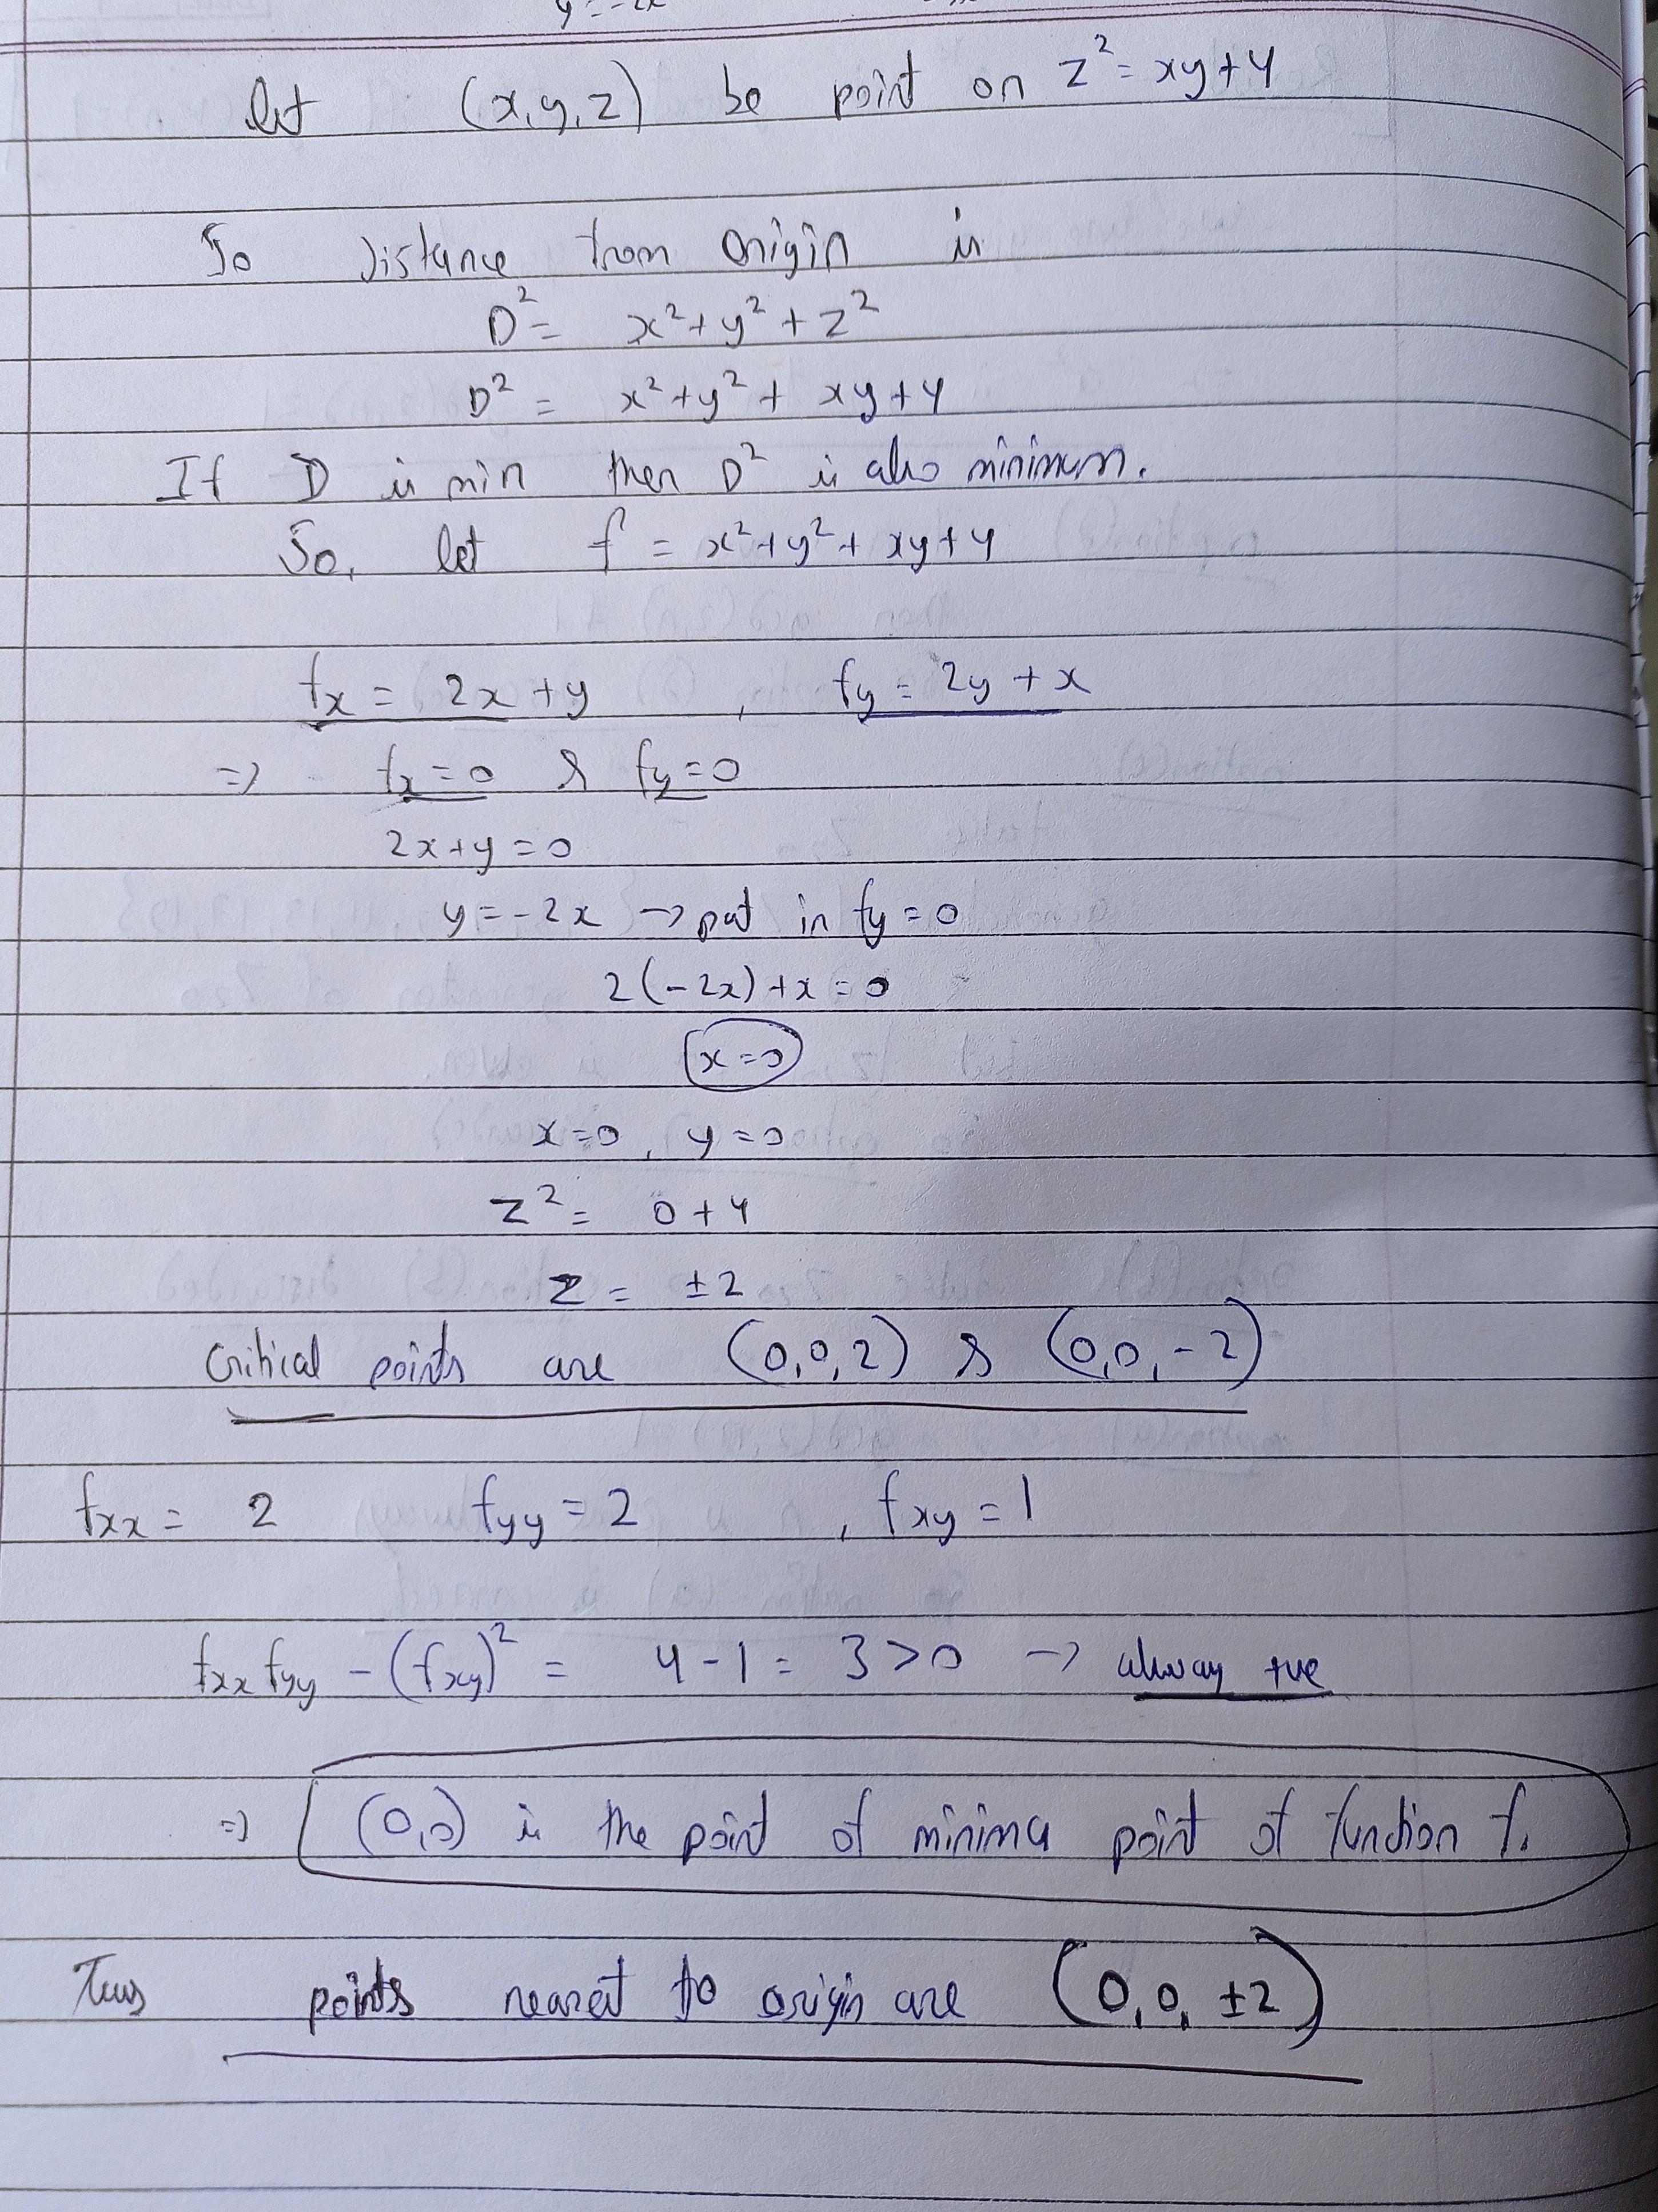 y = -2x
let (x, y, z) be point on z² = xy+4
So distance from origin is
D² = x²+y²+z²
D² = x²+y²+ xy+4
If D is min then D² is also minimum.
So, let f = x²+y²+ xy+4
fx = 2x+y , fy = 2y+x
=> fx=0 & fy=0
2x+y=0
y=-2x → put in fy=0
2(-2x)+x=0
x=0
x=0, y=0
z² = 0+4
z = ±2
Critical points are (0,0,2) & (0,0,-2)
fxx = 2 fyy = 2 , fxy = 1
fxx fyy - (fxy)² = 4-1 = 3>0 → alway +ve
=> (0,0) is the point of minima point of function f.
Thus points nearest to origin are (0, 0, ±2)